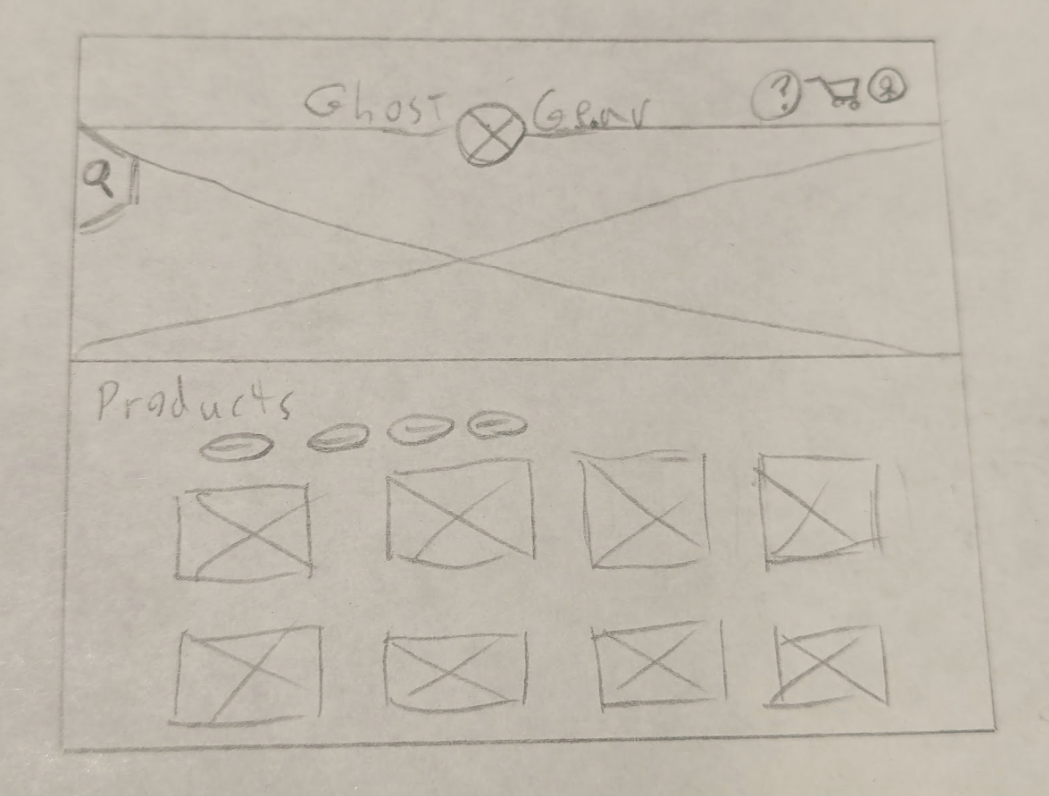 Ghost Gear ?
Products